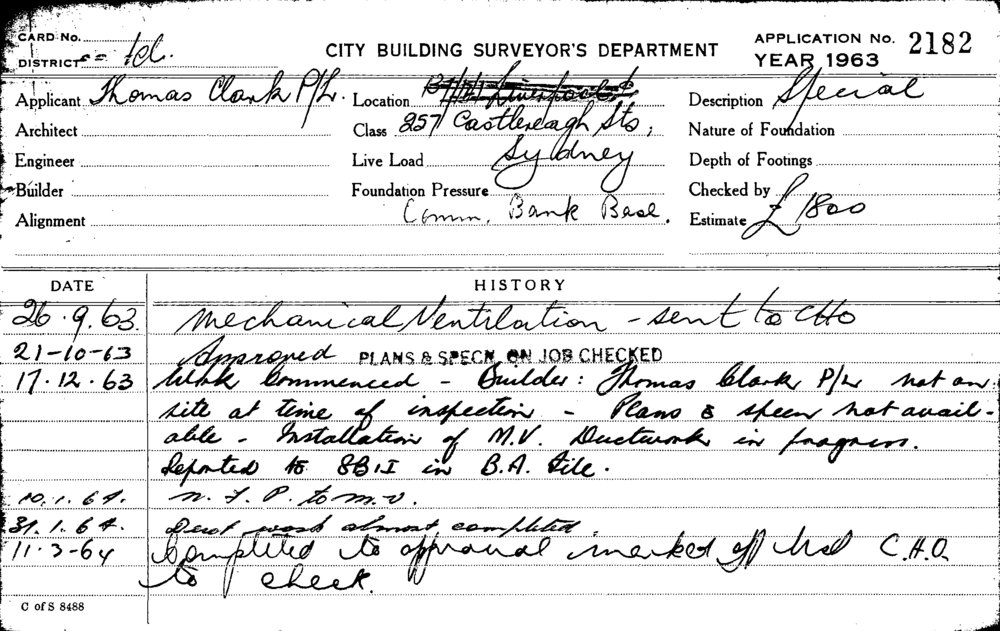 CARD No.
DISTRICT
CITY BUILDING SURVEYOR'S DEPARTMENT
APPLICATION No. 2182
YEAR 1963
Applicant Thomas Clark P/L.
Location Liverpool &
Description Special
Architect
Class 257 Castlereagh Sts,
Nature of Foundation
Engineer
Live Load Sydney
Depth of Footings
Builder
Foundation Pressure
Checked by
Alignment
Comm. Bank Base.
Estimate £1800
DATE HISTORY
26.9.63. Mechanical Ventilation - sent to CHO
21-10-63 Approved PLANS & SPECN. ON JOB CHECKED
17.12.63 Work Commenced - Builder: Thomas Clark P/L not on
site at time of inspection - Plans & specn not avail-
able - Installation of M.V. Ductwork in progress.
Reported to SBI in B.A. File.
10.1.64. N.F.P. to M.V.
31.1.64. Duct work almost completed.
11-3-64 Completed to approval marked off C.H.O.
to check.
C of S 8488